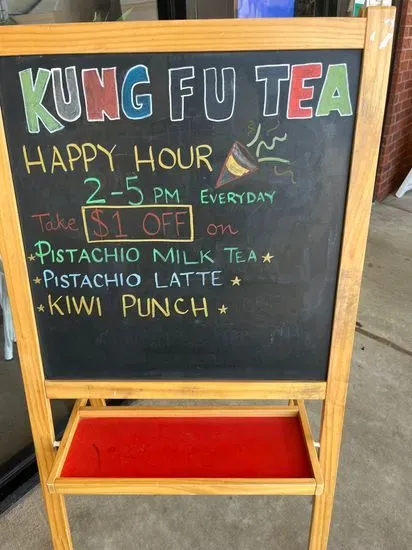 KUNG FU TEA
HAPPY HOUR
2-5 PM EVERYDAY
Take $1 OFF on
PISTACHIO MILK TEA
PISTACHIO LATTE
KIWI PUNCH